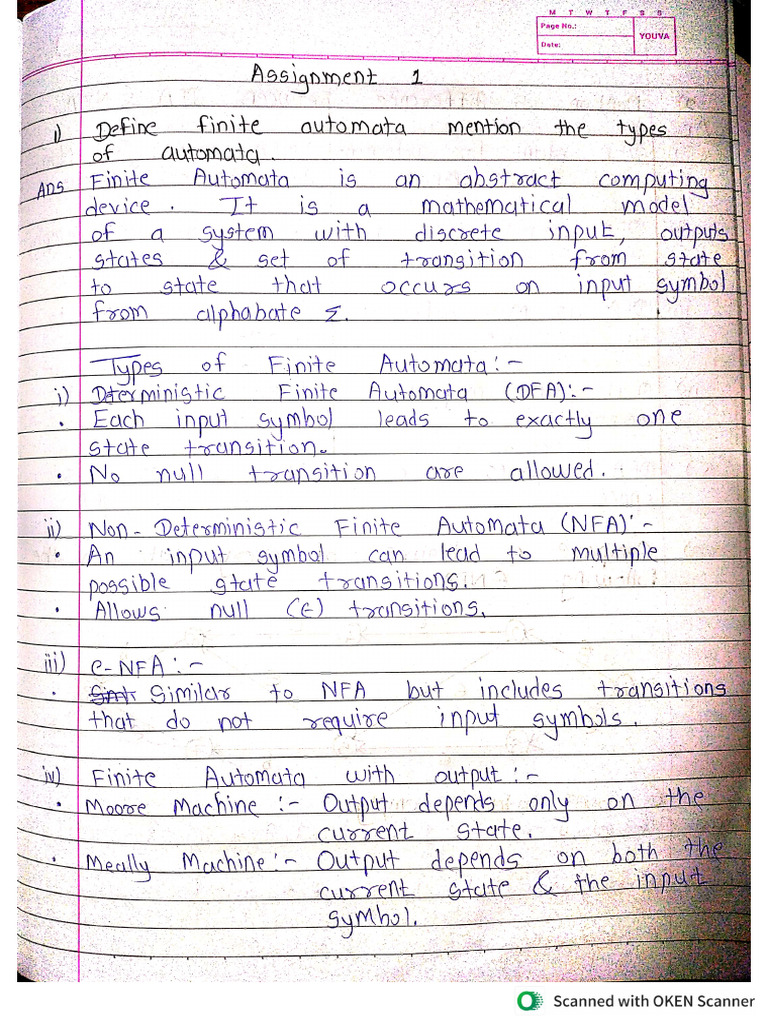 M T W T F S S
Page No.:
Date:
YOUVA
Assignment 1
1) Define finite automata mention the types
of automata.
Ans Finite Automata is an abstract computing
device. It is a mathematical model
of a system with discrete input, outputs
states & set of transition from state
to state that occurs on input symbol
from alphabate Σ.
Types of Finite Automata:-
i) Deterministic Finite Automata (DFA):-
• Each input symbol leads to exactly one
state transition.
• No null transition are allowed.
ii) Non-Deterministic Finite Automata (NFA):-
• An input symbol can lead to multiple
possible state transitions.
• Allows null (ϵ) transitions.
iii) e-NFA:-
• Similar to NFA but includes transitions
that do not require input symbols.
iv) Finite Automata with output:-
• Moore Machine:- Output depends only on the
current state.
• Meally Machine:- Output depends on both the
current state & the input
symbol.
Scanned with OKEN Scanner